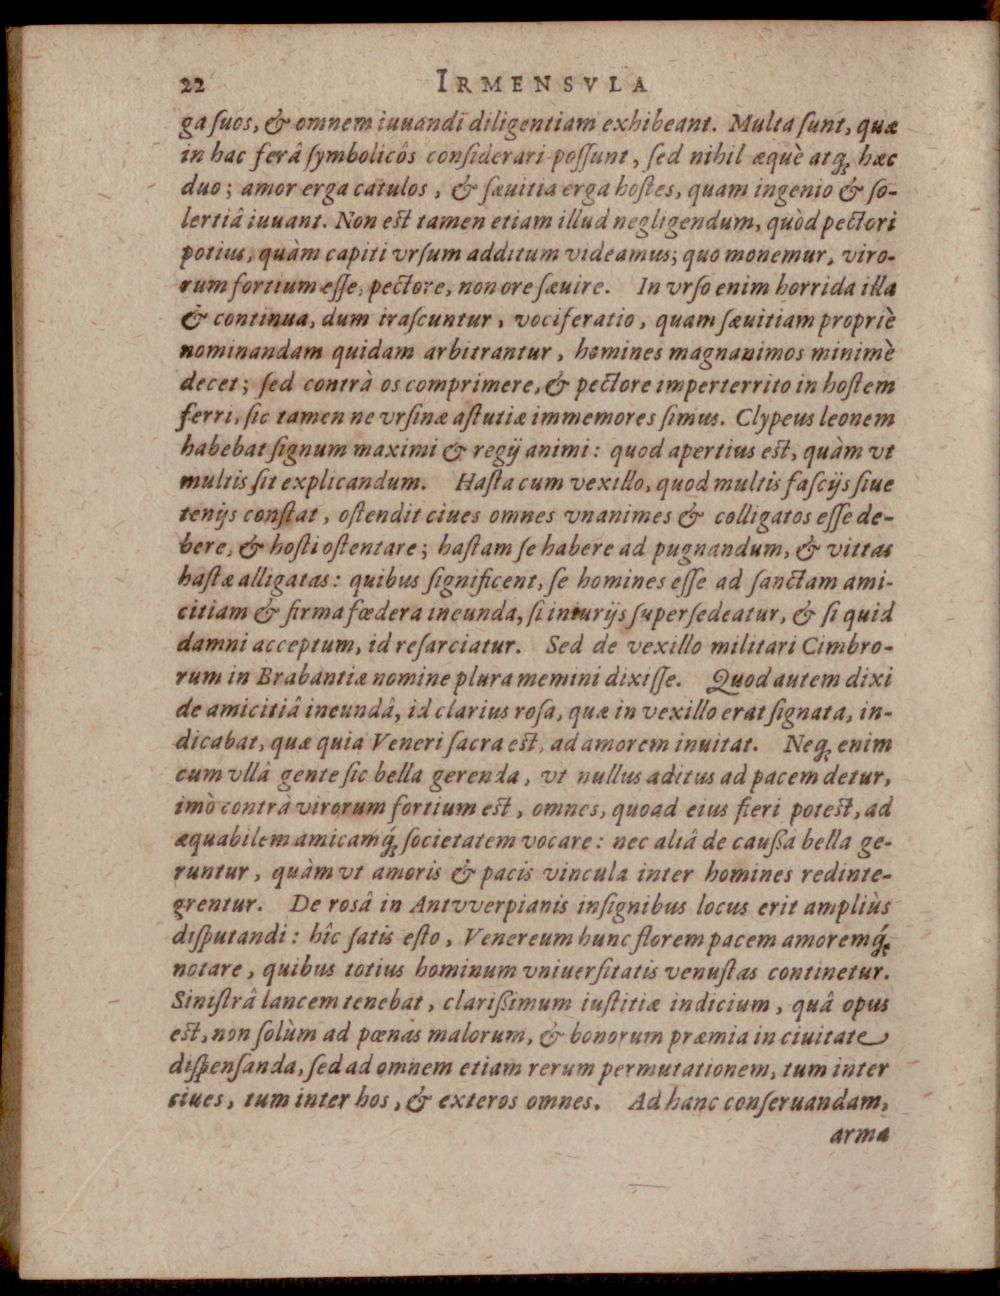 22 IRMENSVLA
ga ſuos, & omnem iuuandi diligentiam exhibeant. Multa ſunt, quæ
in hac ferâ ſymbolicôs conſiderari poſſunt, ſed nihil æquè atq; hæc
duo; amor erga catulos, & ſæuitia erga hoſtes, quam ingenio & ſo-
lertiâ iuuant. Non eſt tamen etiam illud negligendum, quòd pectori
potius, quàm capiti vrſum additum videamus; quo monemur, viro-
rum fortium eſſe, pectore, non ore ſæuire. In vrſo enim horrida illa
& continua, dum iraſcuntur, vociferatio, quam ſæuitiam propriè
nominandam quidam arbitrantur, homines magnanimos minimè
decet; ſed contrà os comprimere, & pectore imperterrito in hoſtem
ferri, ſic tamen ne vrſinæ aſtutiæ immemores ſimus. Clypeus leonem
habebat ſignum maximi & regij animi: quod apertius eſt, quàm vt
multis ſit explicandum. Haſta cum vexillo, quod multis faſcijs ſiue
tenijs conſtat, oſtendit ciues omnes vnanimes & colligatos eſſe de-
bere, & hoſti oſtentare; haſtam ſe habere ad pugnandum, & vittas
haſtæ alligatas: quibus ſignificent, ſe homines eſſe ad ſanctam ami-
citiam & firma fœdera ineunda, ſi iniurijs ſuperſedeatur, & ſi quid
damni acceptum, id reſarciatur. Sed de vexillo militari Cimbro-
rum in Brabantiæ nomine plura memini dixiſſe. Quod autem dixi
de amicitiâ ineundâ, id clarius roſa, quæ in vexillo erat ſignata, in-
dicabat, quæ quia Veneri ſacra eſt, ad amorem inuitat. Neq; enim
cum vllâ gente ſic bella gerenda, vt nullus aditus ad pacem detur,
imò contrà virorum fortium eſt, omnes, quoad eius fieri poteſt, ad
æquabilem amicamq́; ſocietatem vocare: nec aliâ de cauſſa bella ge-
runtur, quàm vt amoris & pacis vincula inter homines redinte-
grentur. De rosâ in Antvverpianis inſignibus locus erit ampliùs
diſputandi: hîc ſatis eſto, Venereum hunc florem pacem amoremq́;
notare, quibus totius hominum vniuerſitatis venuſtas continetur.
Siniſtrâ lancem tenebat, clariſſimum iuſtitiæ indicium, quâ opus
eſt, non ſolùm ad pœnas malorum, & bonorum præmia in ciuitate
diſpenſanda, ſed ad omnem etiam rerum permutationem, tum inter
ciues, tum inter hos, & exteros omnes. Ad hanc conſeruandam,
arma